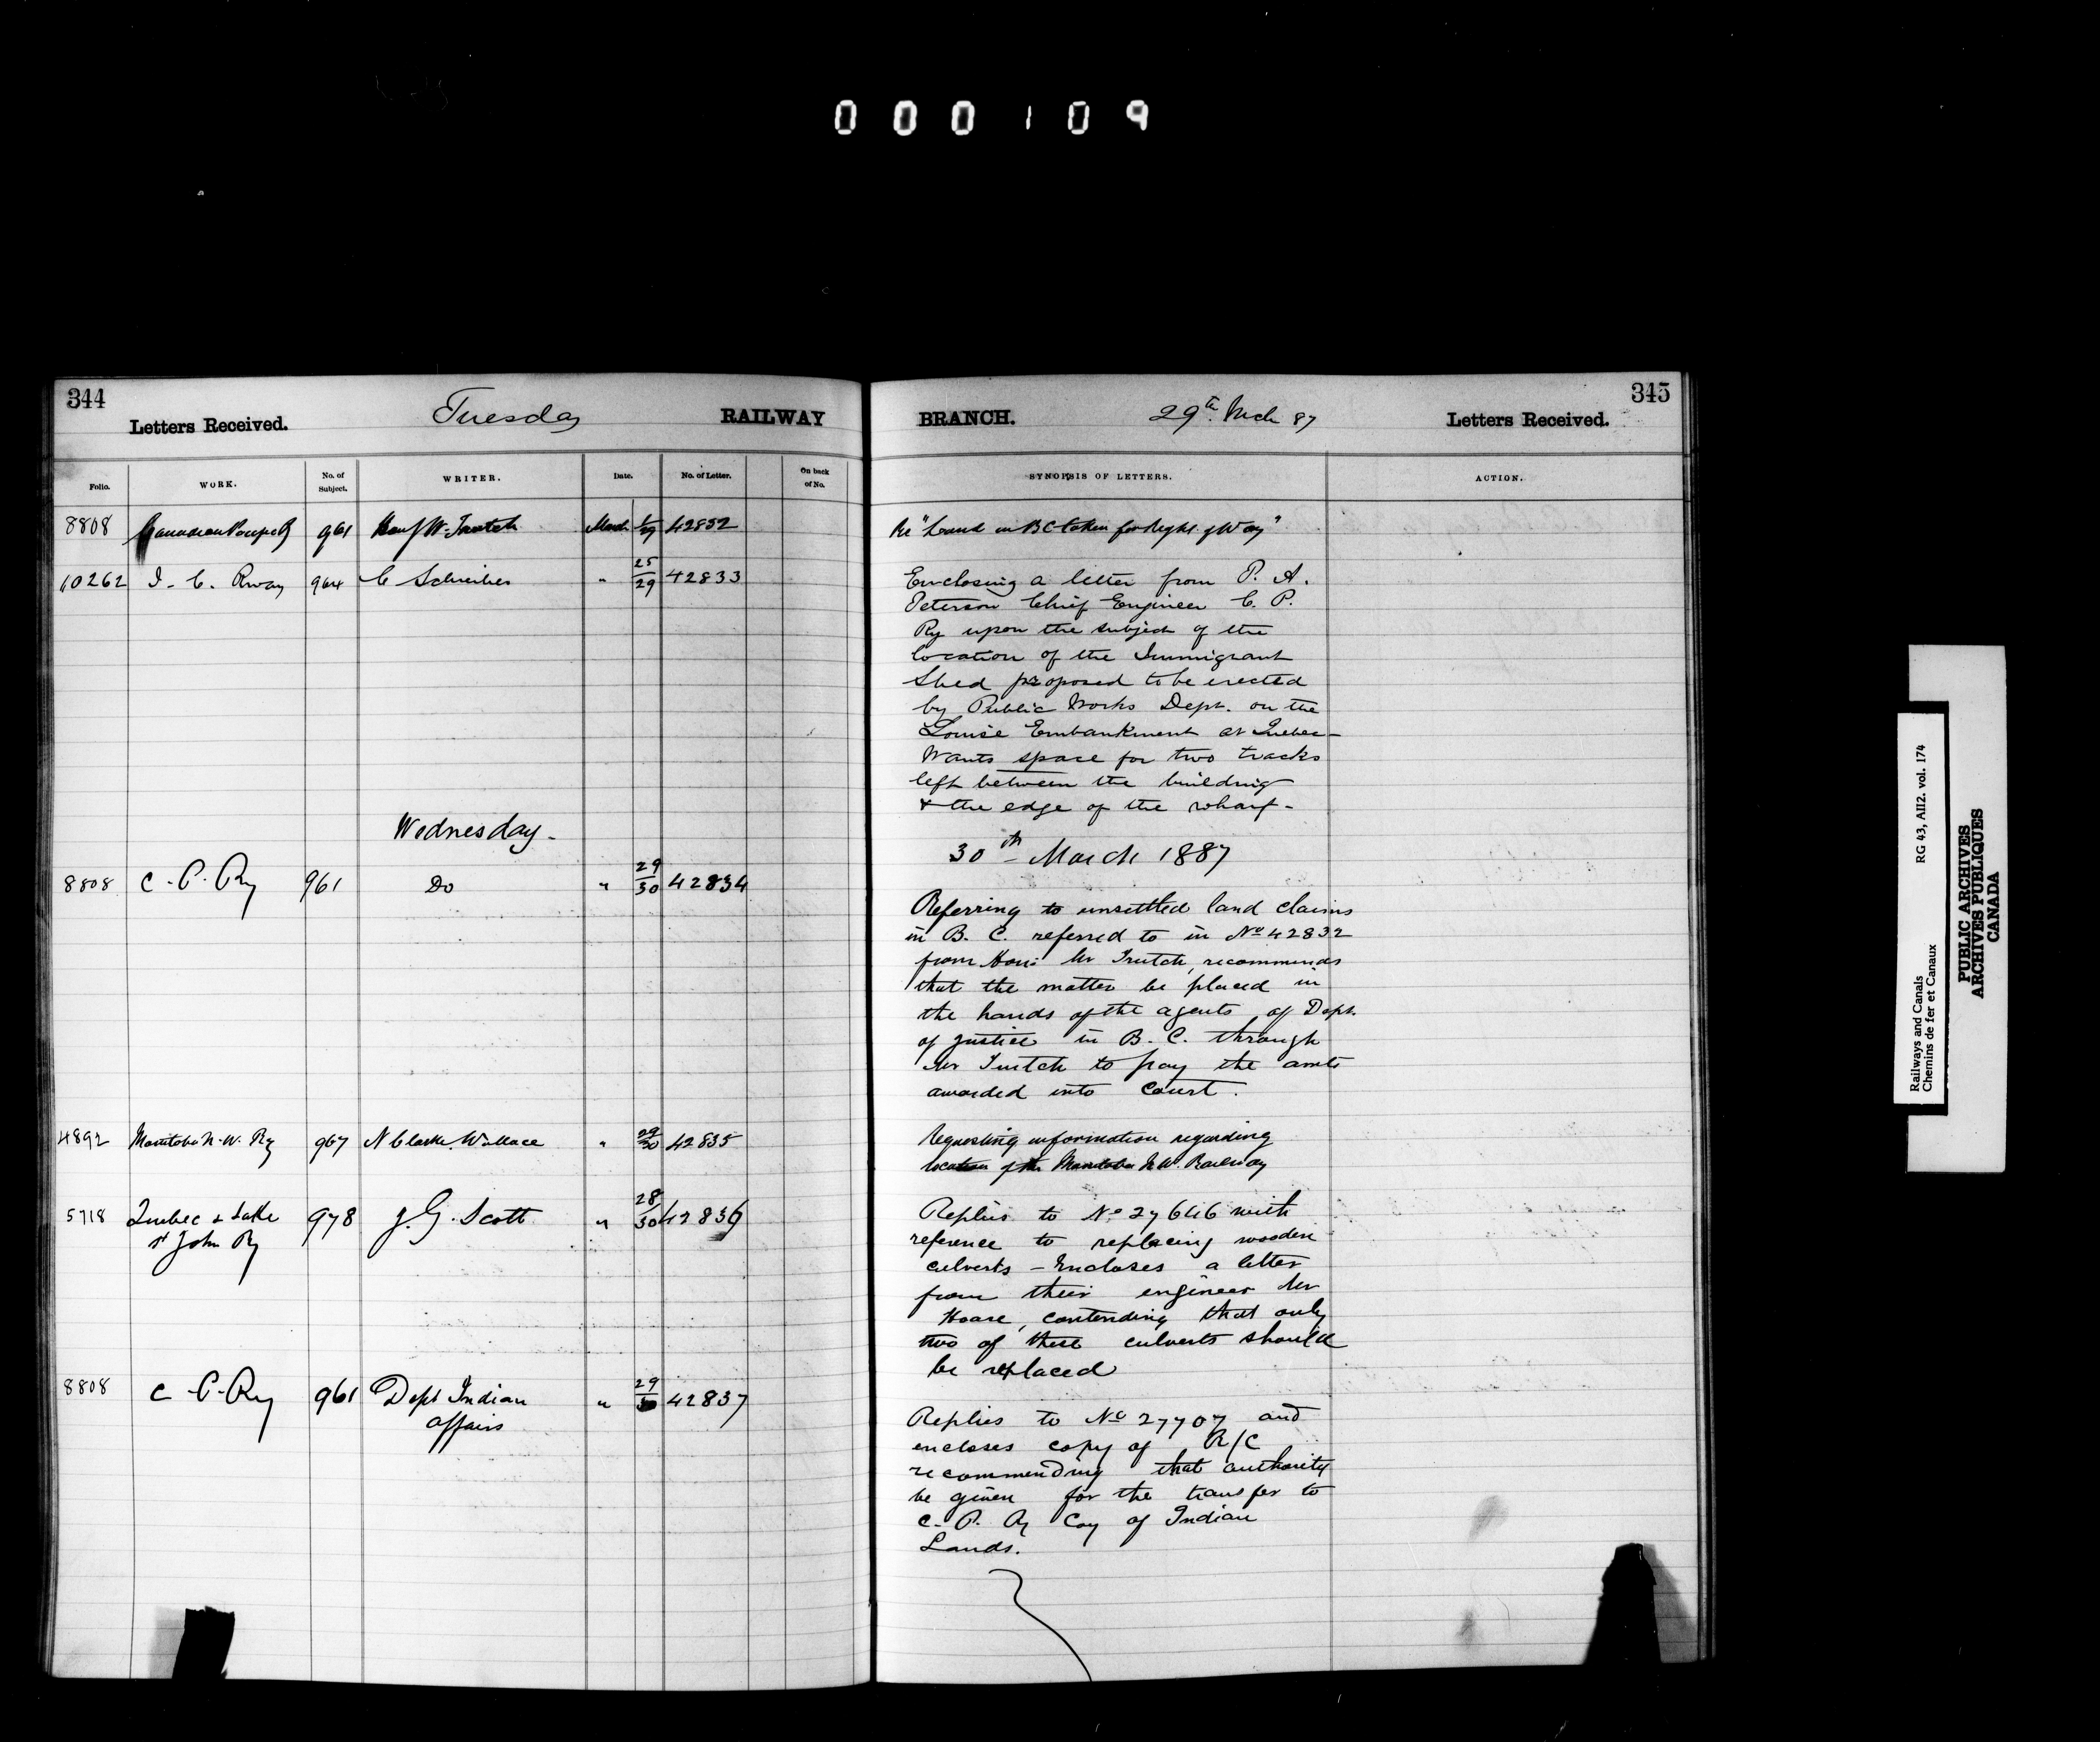 000109
344
Letters Received.
Tuesday
RAILWAY
BRANCH.
29th Mch 87
Letters Received.
345
Folio.
WORK.
No. of Subject.
WRITER.
Date.
No. of Letter.
On back of No.
SYNOPSIS OF LETTERS.
ACTION.
8808 Canadian Pacific Ry 961 Hon J W. Trutch March /29 42832
Re "Land in BC taken for Right of Way"
10262 I. C. Rway 964 C Schreiber " 25/29 42833
Enclosing a letter from P. A.
Peterson Chief Engineer C. P.
Ry upon the subject of the
location of the Immigrant
Shed proposed to be erected
by Public Works Dept. on the
Louise Embankment at Quebec -
Wants space for two tracks
left between the building
& the edge of the wharf -
Wednesday -
30th March 1887
8808 C. P. Ry 961 Do " 29/30 42834
Referring to unsettled land claims
in B. C. referred to in No 42832
from Hon: Mr Trutch, recommends
that the matter be placed in
the hands of the agents of Dept.
of Justice in B. C. through
Mr Trutch to pay the amts
awarded into Court.
4892 Manitoba N. W. Ry 967 N Clarke Wallace " 29/30 42835
Requesting information regarding
location of the Manitoba N. W. Railway
5718 Quebec & Lake
St John Ry 978 J. G. Scott " 28/30 42836
Replies to No 27646 with
reference to replacing wooden
culverts - Encloses a letter
from their engineer Mr
Hoare, contending that only
two of these culverts should
be replaced
8808 C. P. Ry 961 Dept Indian
Affairs " 29/30 42837
Replies to No 27707 and
encloses copy of R/C
recommending that authority
be given for the transfer to
C. P. Ry Coy of Indian
Lands.
Railways and Canals RG 43, AII2. vol. 174
Chemins de fer et Canaux
PUBLIC ARCHIVES
ARCHIVES PUBLIQUES
CANADA